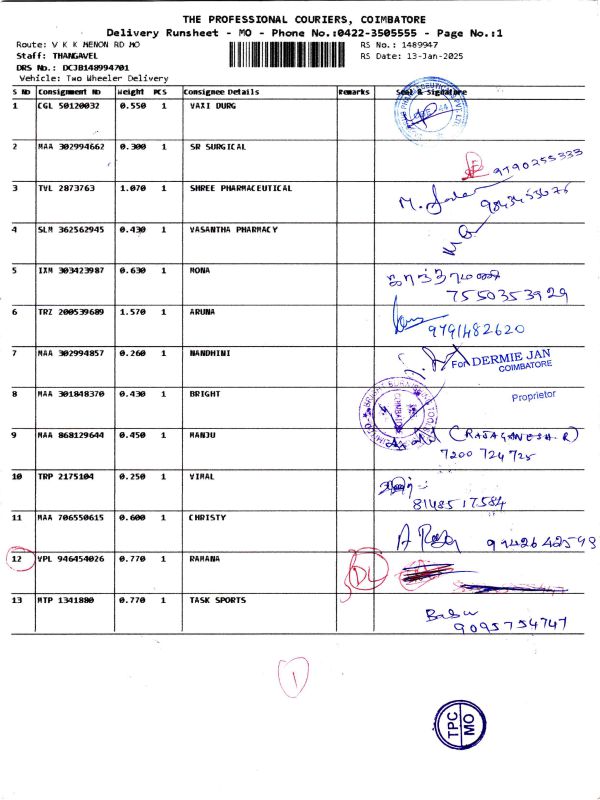 THE PROFESSIONAL COURIERS, COIMBATORE
Delivery Runsheet - MO - Phone No.:0422-3505555 - Page No.:1
Route: V K K MENON RD MO RS No.: 1489947
Staff: THANGAVEL RS Date: 13-Jan-2025
DRS No.: DCJB148994701
Vehicle: Two Wheeler Delivery
S No Consignment No Weight PCS Consignee Details Remarks Seal & Signature
1 CGL 50120032 0.550 1 VAXI DURG
2 MAA 302994662 0.300 1 SR SURGICAL 9790255333
3 TVL 2873763 1.070 1 SHREE PHARMACEUTICAL
4 SLM 362562945 0.430 1 VASANTHA PHARMACY
5 IXM 303423987 0.630 1 MONA
7550353929
6 TRZ 200539689 1.570 1 ARUNA
9791482620
7 MAA 302994857 0.260 1 NANDHINI For DERMIE JAN
COIMBATORE
8 MAA 301848370 0.430 1 BRIGHT Proprietor
9 MAA 868129644 0.450 1 MANJU (RAJAGANESH.R)
7200 724725
10 TRP 2175104 0.250 1 VIMAL
8148517584
11 MAA 706550615 0.600 1 CHRISTY
9942642598
12 VPL 946454026 0.770 1 RAMANA DL
13 MTP 1341880 0.770 1 TASK SPORTS Babu
9095754747
1
TPC MO